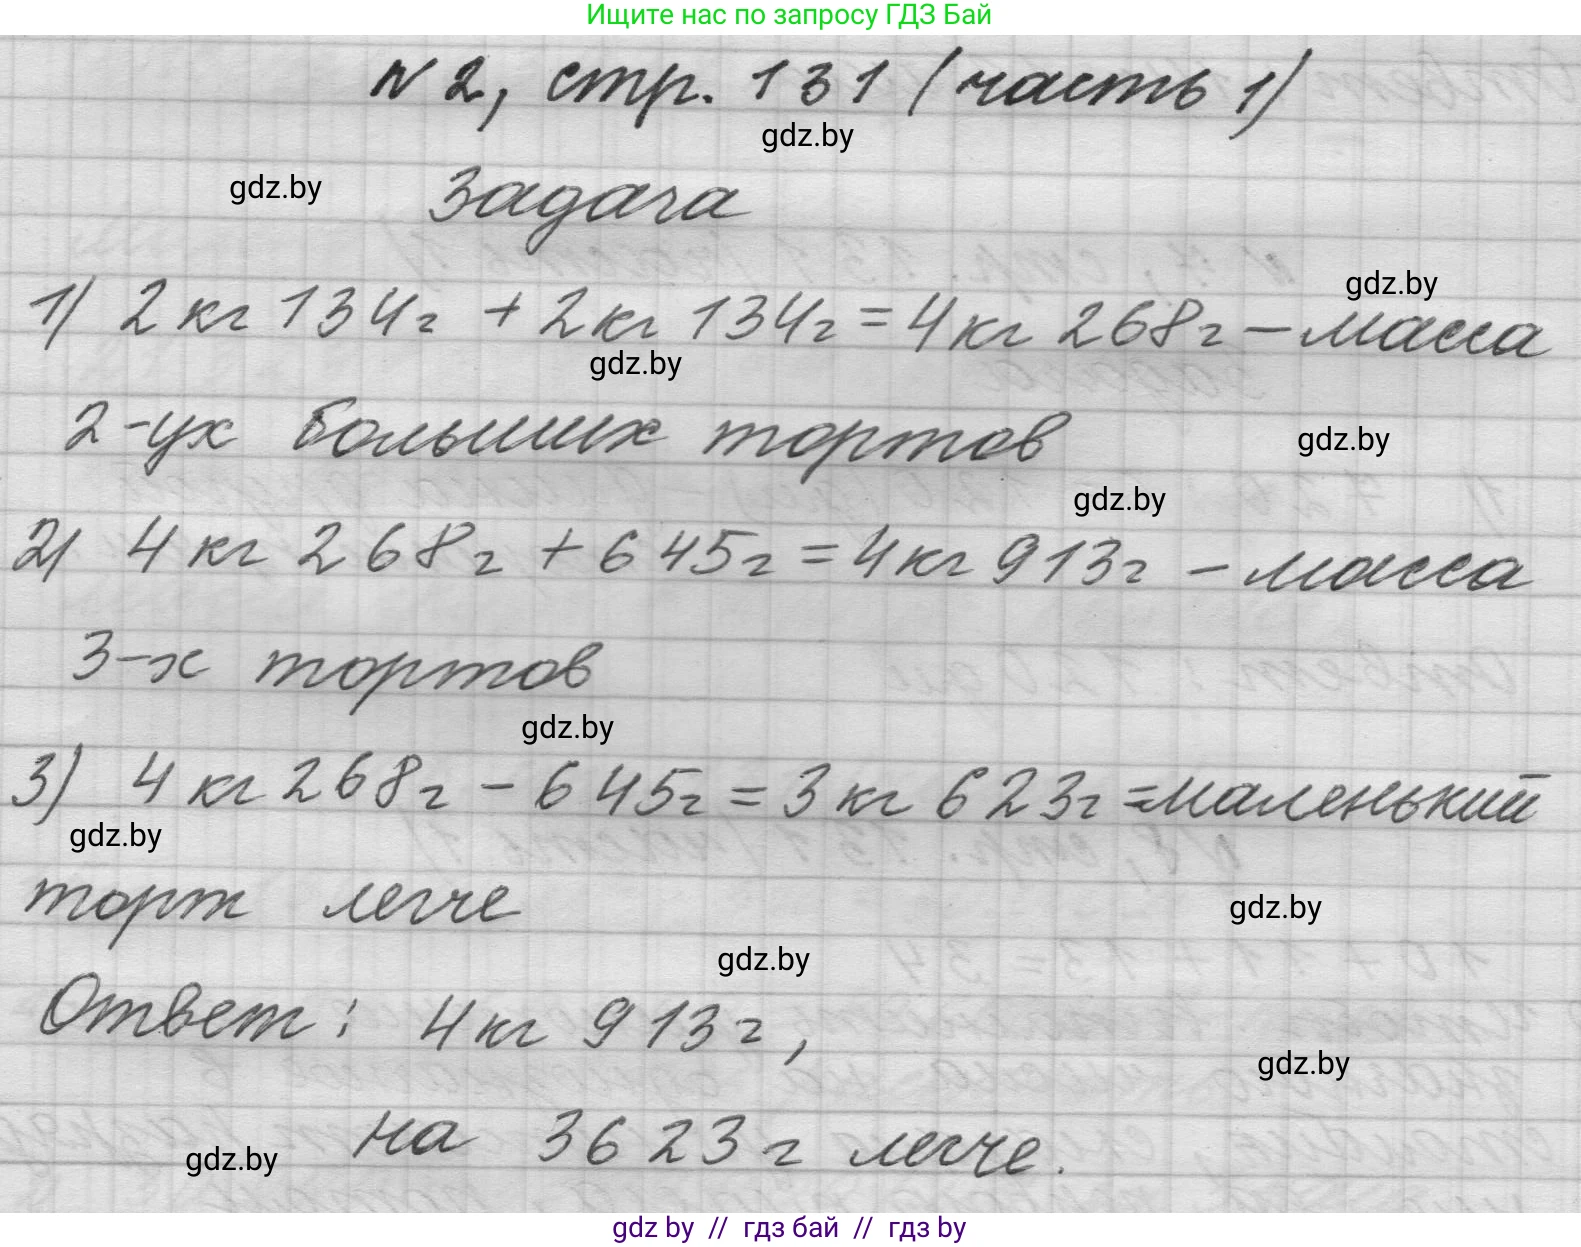 Ищите нас по запросу ГДЗ Бай
N 2, стр. 131 (часть 1)
gdz.by
gdz.by
Задача
gdz.by
1) 2 кг 134г + 2 кг 134г = 4 кг 268г – масса
gdz.by
2-ух больших тортов
gdz.by
gdz.by
2) 4 кг 268г + 645г = 4 кг 913г – масса
3-х тортов
gdz.by
3) 4 кг 268г - 645г = 3 кг 623г = маленький
gdz.by
торт легче
gdz.by
gdz.by
Ответ: 4 кг 913г,
gdz.by
на 3623г легче.
gdz.by
gdz by // гдз бай // гдз by